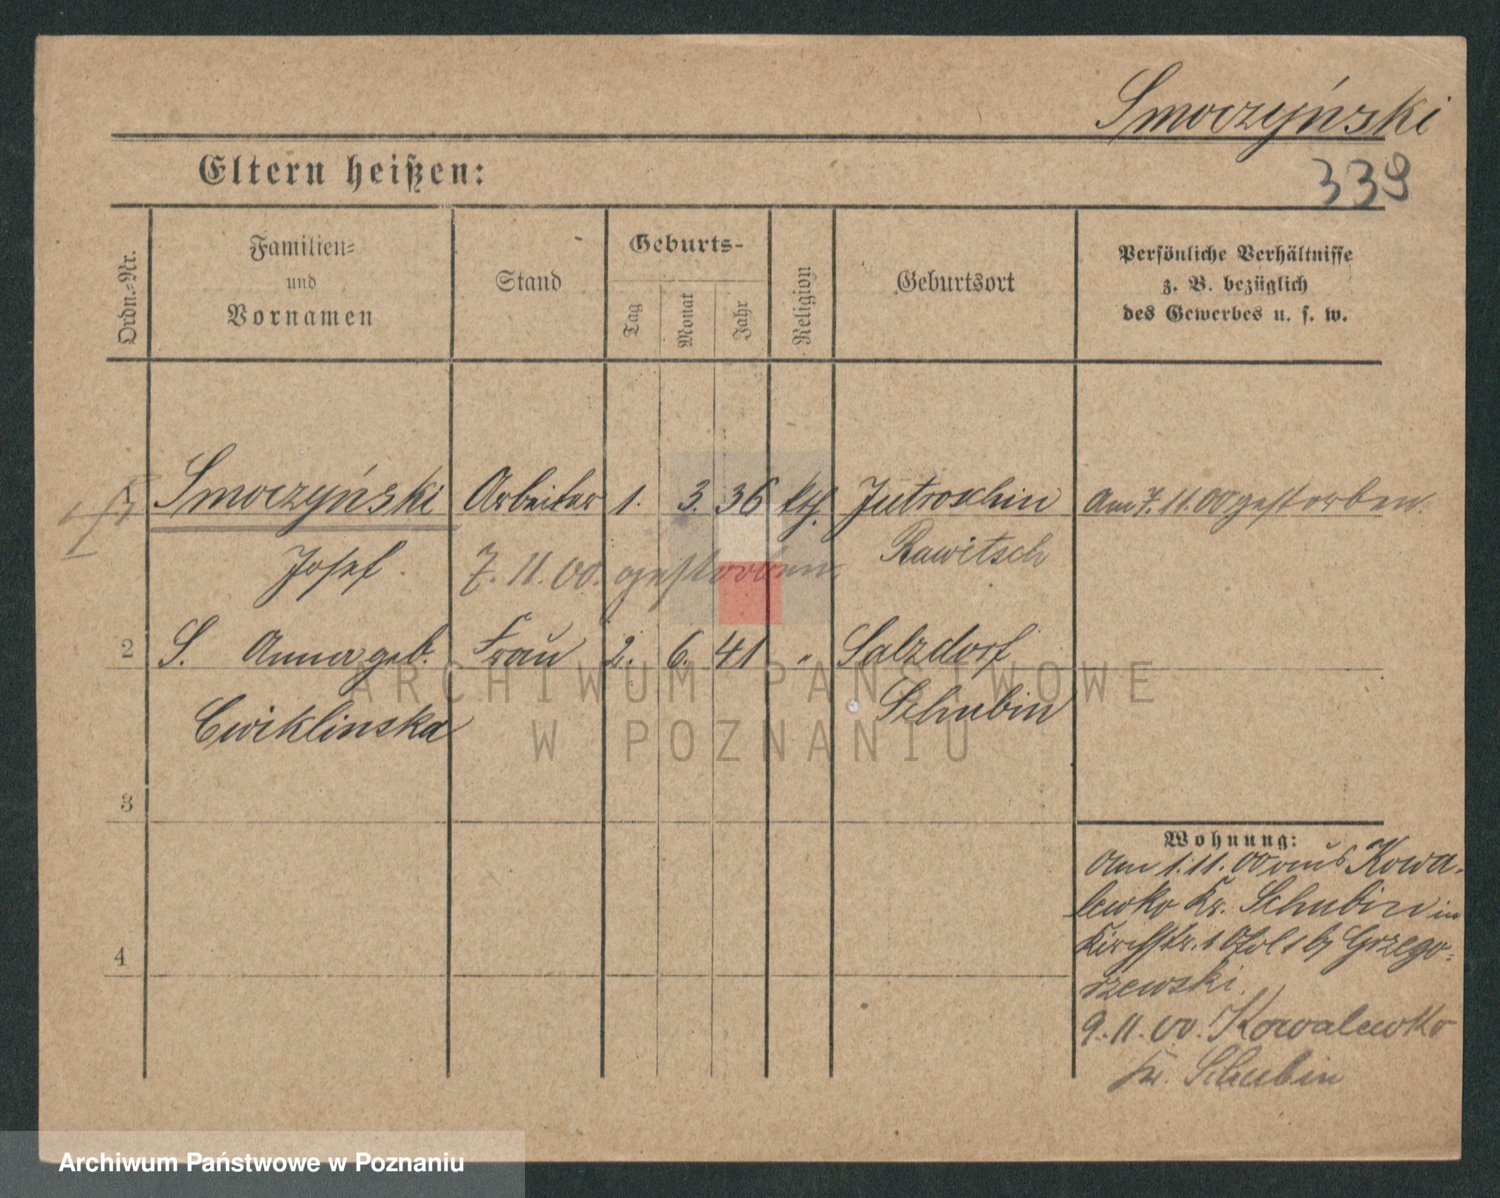 Smoczyński
339
Eltern heißen:
Ordn.-Nr.
Familien-
und
Vornamen
Stand
Geburts-
Tag
Monat
Jahr
Religion
Geburtsort
Persönliche Verhältnisse
z. B. bezüglich
des Gewerbes u. s. w.
1 Smoczyński Arbeiter 1. 3. 36 kth. Jutroschin Am 7.11.00 gestorben.
Josef. 7.11.00. gestorben Rawitsch
2 S. Anna geb. Frau 2. 6. 41 " Salzdorf
Cwiklinska Schubin
3
4
Wohnung:
Am 1.11.00 aus Kowa-
lewko Kr. Schubin in
Kirchstr. 1 b/ Grzego-
rzewski.
9.11.00. Kowalewko
Kr. Schubin
ARCHIWUM PAŃSTWOWE
W POZNANIU
Archiwum Państwowe w Poznaniu